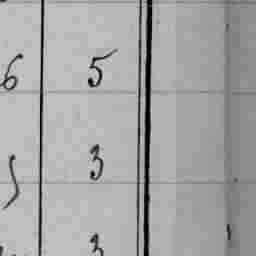 6 5
3
3